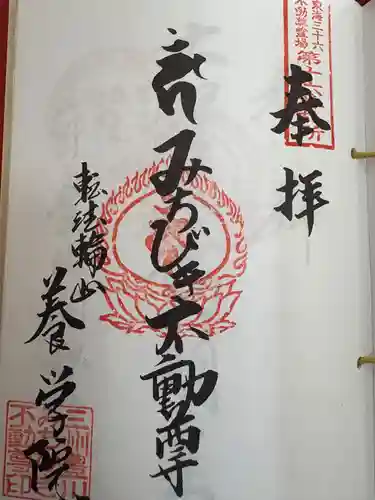 奉拝
東海三十六
不動尊霊場
みちびき不動尊
転法輪山
養学院
三州豊川
不動尊印